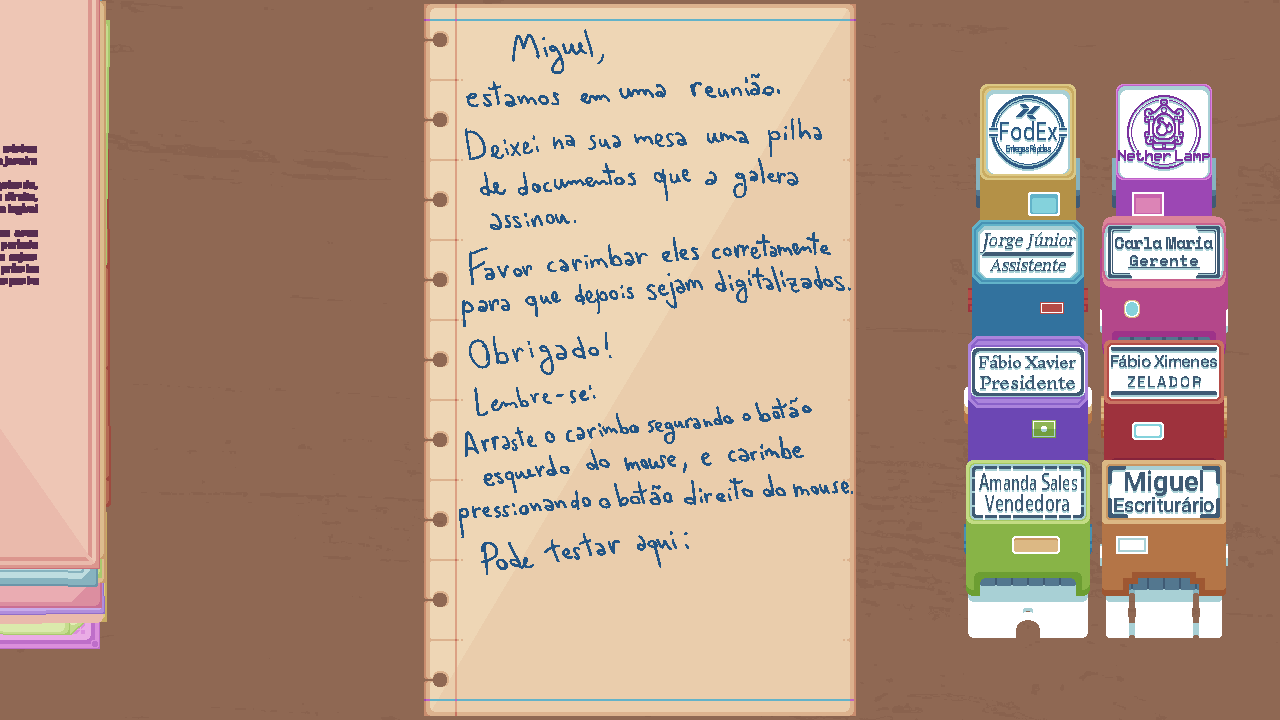 Miguel,
estamos em uma reunião.
Deixei na sua mesa uma pilha
de documentos que a galera
assinou.
Favor carimbar eles corretamente
para que depois sejam digitalizados.
Obrigado!
Lembre-se:
Arraste o carimbo segurando o botão
esquerdo do mouse, e carimbe
pressionando o botão direito do mouse.
Pode testar aqui:
FodEx
Entregas Rápidas
Nether Lamp
Jorge Júnior
Assistente
Carla Maria
Gerente
Fábio Xavier
Presidente
Fábio Ximenes
ZELADOR
Amanda Sales
Vendedora
Miguel
Escriturário